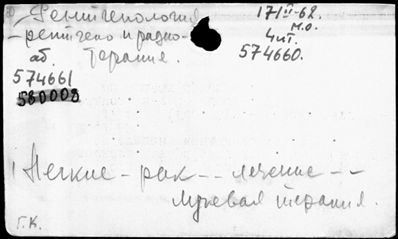 Рентгенология
17/II-62.
- рентгено и радио-
м.о.
аб. терапия.
4ит.
574660.
574661
580008
Легкие - рак -- лечение --
лучевая терапия.
Г.К.